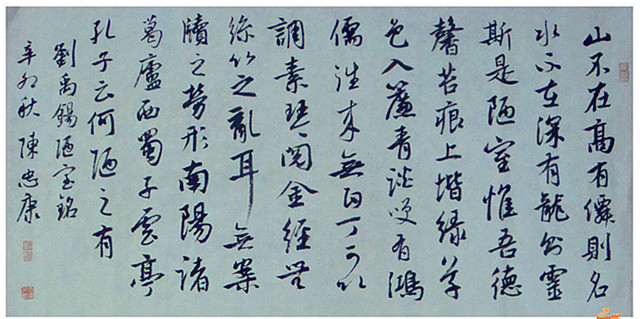 山不在高有僊則名
水不在深有龍則靈
斯是陋室惟吾德
馨苔痕上堦綠草
色入簾青談笑有鴻
儒往來無白丁可以
調素琴閱金經無
絲竹之亂耳無案
牘之勞形南陽諸
葛廬西蜀子雲亭
孔子云何陋之有
劉禹錫陋室銘
辛卯秋陳忠康